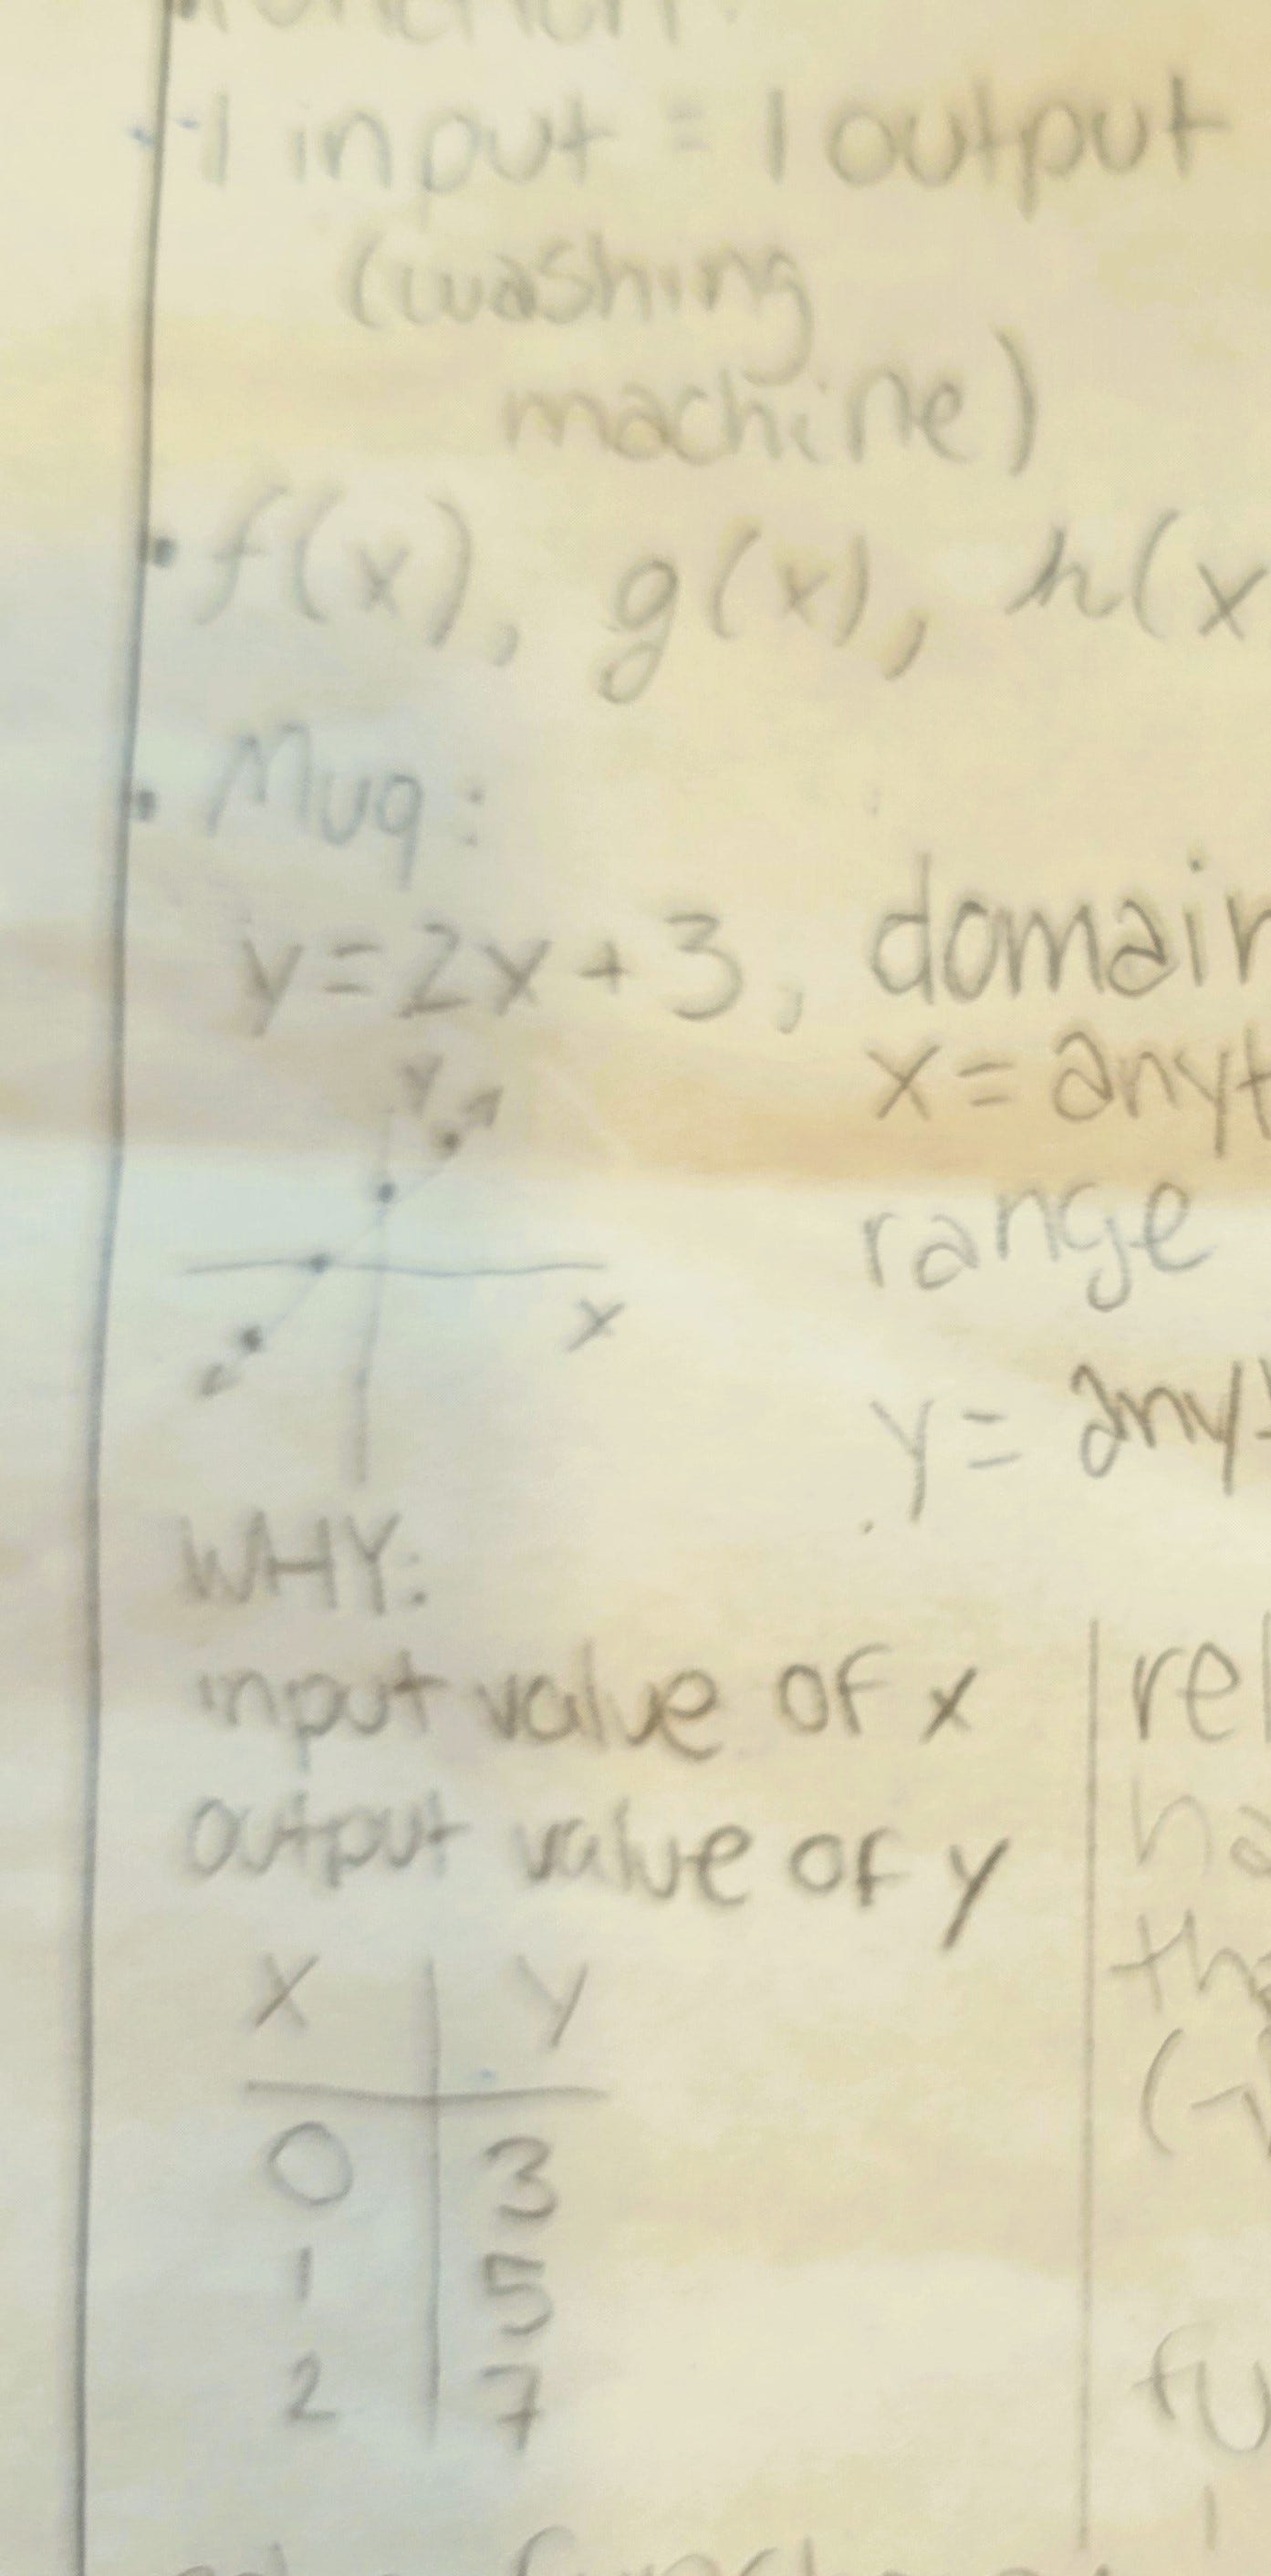 function:
1 input = 1 output
(washing
machine)
• f(x), g(x), h(x
• Mug:
y = 2x + 3, domain
x = anyt
range
y = any
y
x
WHY:
input value of x
output value of y
x y
0 3
1 5
2 7
rel
ha
th
(-
fu